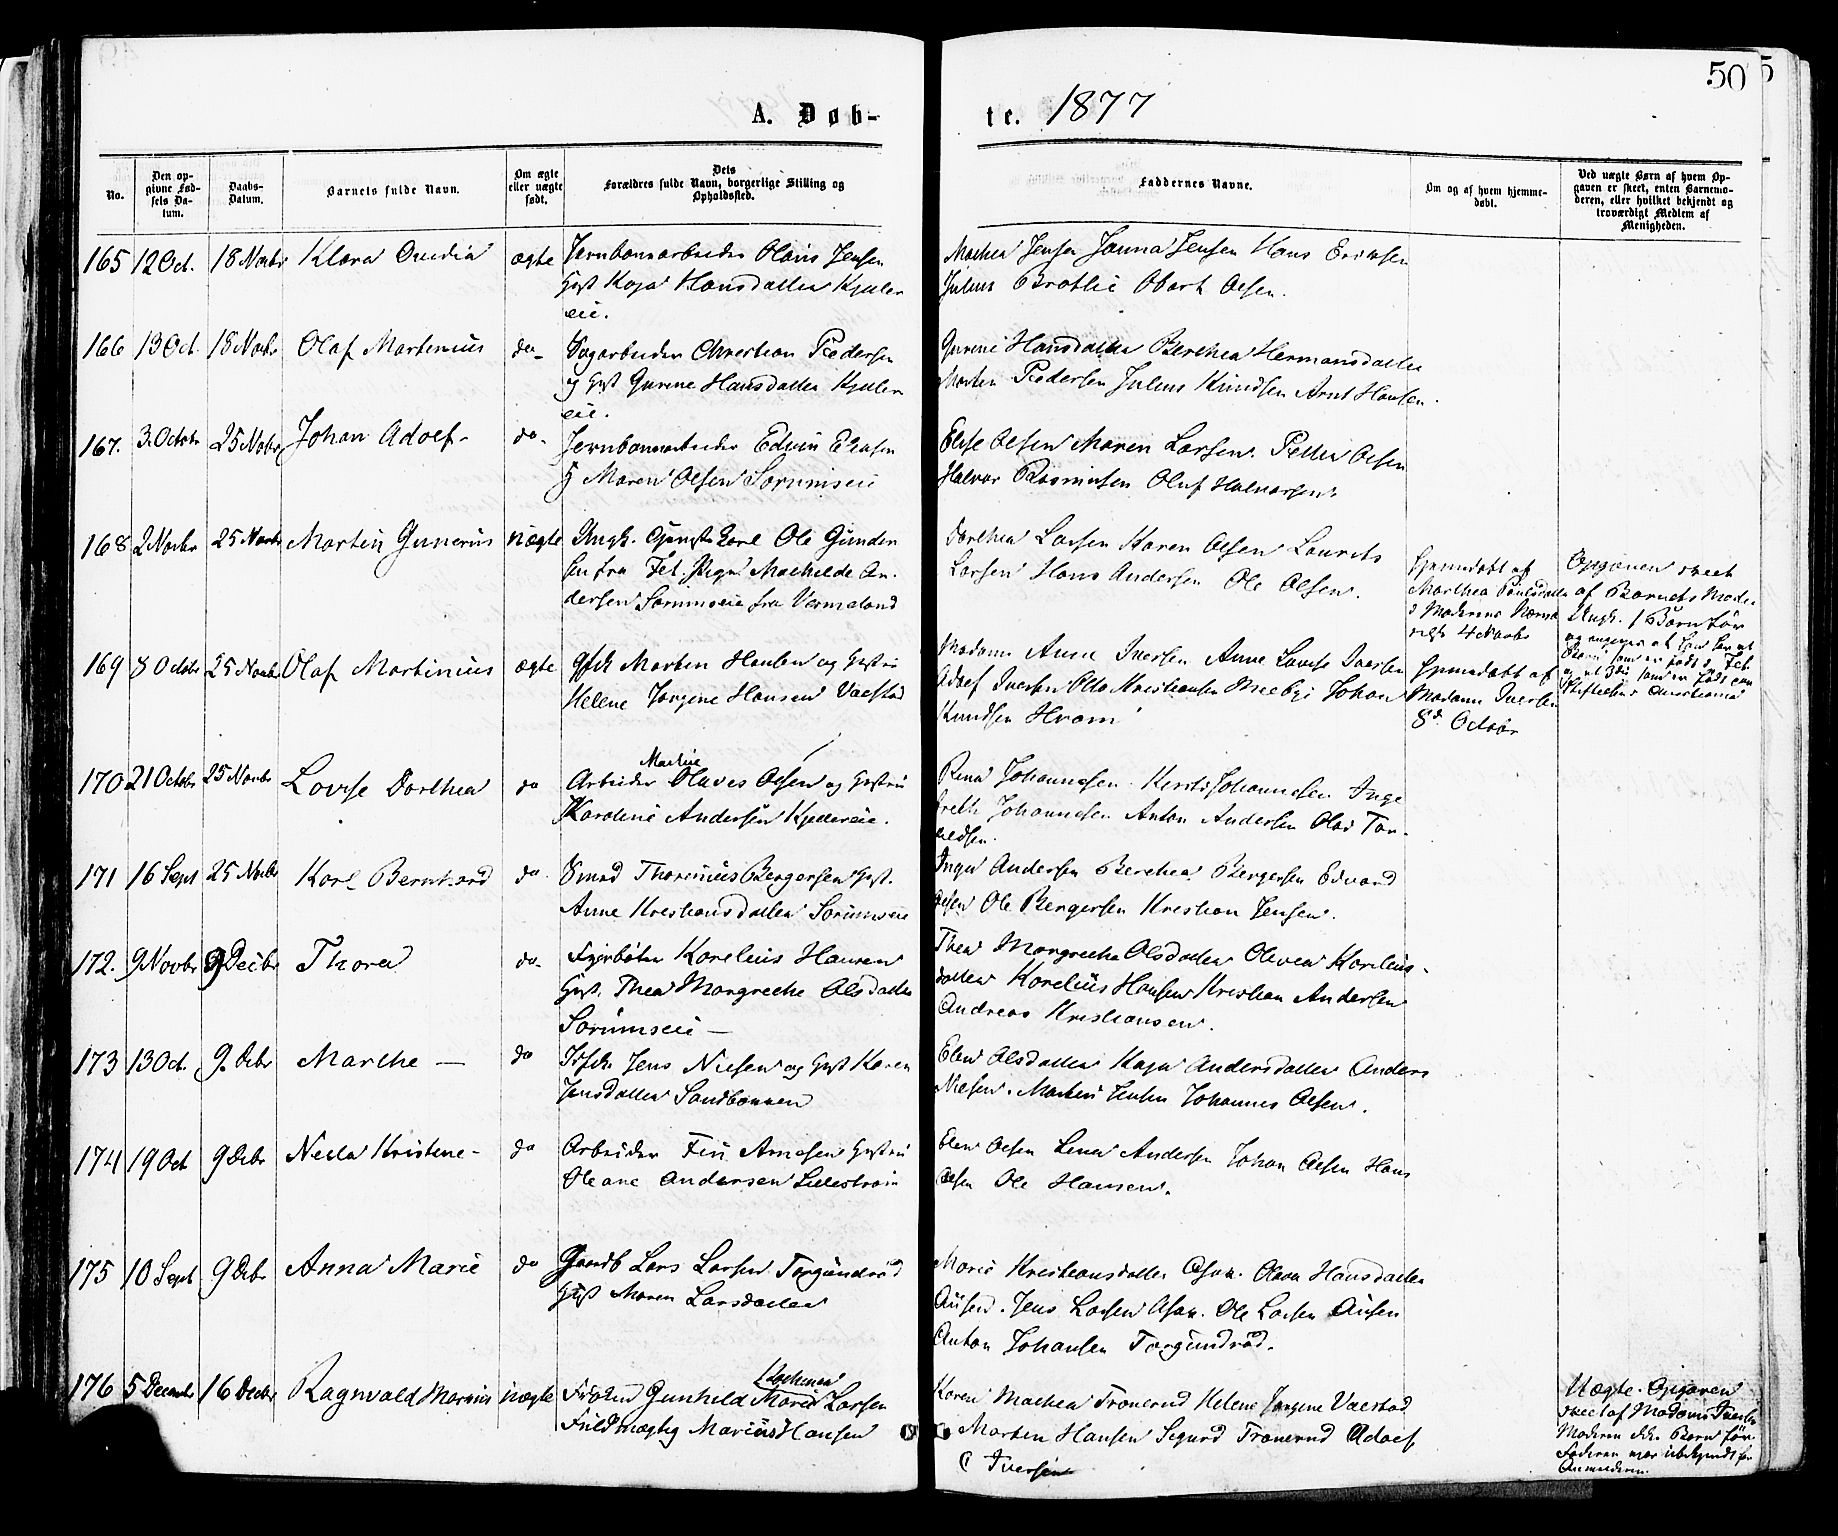 50
A. Døb-
te. 1877
No.
Den op-
givne Fød-
sels Da-
tum.
Daabs-
Datum.
Barnets fulde Navn.
Om ægte
eller uægte
født.
Dets
Forældres fulde Navn, borgerlige Stilling og
Opholdssted.
Faddernes Navne.
Om og af hvem hjemme-
døbt.
Ved uægte Børn af hvem Op-
gaven er skeet, enten Barnemo-
deren, eller hvilket bekjendt og
troværdigt Medlem af
Menigheden.
165 12 Oct. 18 Novbr Klara ægte Jernbanearbeider Olaus Jensen
Gust Kaja Hansdatter Kjeller
eie.
Mathea Jensen Janna Jensen Hans Eriksen
Julius Brotlie Obert Olsen.
166 13 Oct. 18 Novbr Olaf Martinius do- Sagarbeider Christian Pedersen
og Gust Gurine Hansdatter Kjeller
eie.
Gurine Hansdatter Berthea Hermansdatter
Morten Pedersen Julius Knudsen Arnt Hansen.
167. 3. Octobr 25 Novbr Johan Adolf- do- Jernbanearbeider Edvin
G Maren Olsen Sørumseie
Else Olsen Maren Larsen. Petter Olsen
Halvor Rasmusen Oluf Halvorsen.
168 2 Novbr 25 Novbr Martin Gunerius uægte Ungk. Ole Gunder
sen fra Fet. Pige Mathilde An-
dersen Sørumseie fra Vermeland
Dorthea Larsen Karen Olsen Laurits
Larsen Hans Andersen Ole Olsen.
Hjemdøbt af
Marthea
i Moderens
4 Novbr
Opgaven skeet
af Barnets Moder
Ungk. 1 Barn før
169 8 Octobr 25 Novbr Olaf Martinius ægte Morten Hansen og Hustru
Helene Jørgine Hansen Vaestad
Madam Anne Iversen Anne Lovise Iversen
Adolf Iversen Otto Kristiansen Johan
Knudsen Hvam
Hjemdøbt af
Madam Iversen
8de Octobr
170 21 Octobr 25 Novbr Lovise Dorthea do Arbeider Martin Olaves Olsen og Hustru
Karoline Andersen Kjellereie.
Rina Johannesen. Johannesen Inge
Johannesen Anton Andersen Olai Tor-
171 16 Sept 25 Novbr Karl Bernhard do. Smed Thorinius Bergersen Gust.
Anne Kristiansdatter Sørumseie
Inga Andersen Berthea Bergersen Edvard
Olsen Ole Bergersen Kristian Jensen.
172. 9 Novbr 9 Decbr Thora do- Fyrbøter Korelius Hansen
Gust. Thea Margrethe Olsdatter
Sørumseie -
Thea Margrethe Olsdatter Olevea Korelius-
datter Korelius Hansen Kristian Andersen
Andreas Kristiansen.
173 13 Oct. 9. Dcbr Marthe - do Jens Nielsen og Gust Karen
Jensdatter Sandbonnen
Elen Olsdatter Kaja Andersdatter Anders
Nielsen. Jensen Johannes Olsen.
174 19 Oct 9 Dcbr Kristine- do Arbeider Arnesen Hustru
Oleane Andersen Lillestrøm
Elen Olsen Lina Andersen Johan Olsen Hans
Olsen Ole Hansen.
175 10 Sept 9 Dcbr Anna Marie do Gaardb Lars Larsen Torgundrud
Gust Maren Larsdatter
Marie Kristiansdatter Olava Hansdatter
Jens Larsen Ole Larsen
Anton Johansen Torgundrud.
176 5 Decembr 16 Decbr Ragnvald Marius uægte Frøken Gunhild Marie Larsen
Fuldmægtig Marius Hansen
Karen Mathea Tronerud Helene Jørgine Vaestad
Morten Hansen Sigurd Tronerud Adolf
Iversen
Uægte. Opgaven
skeet af Madam Iversen
Moderen ikke Barn før.
Faderen var ubekjendt for
Anmelderen.